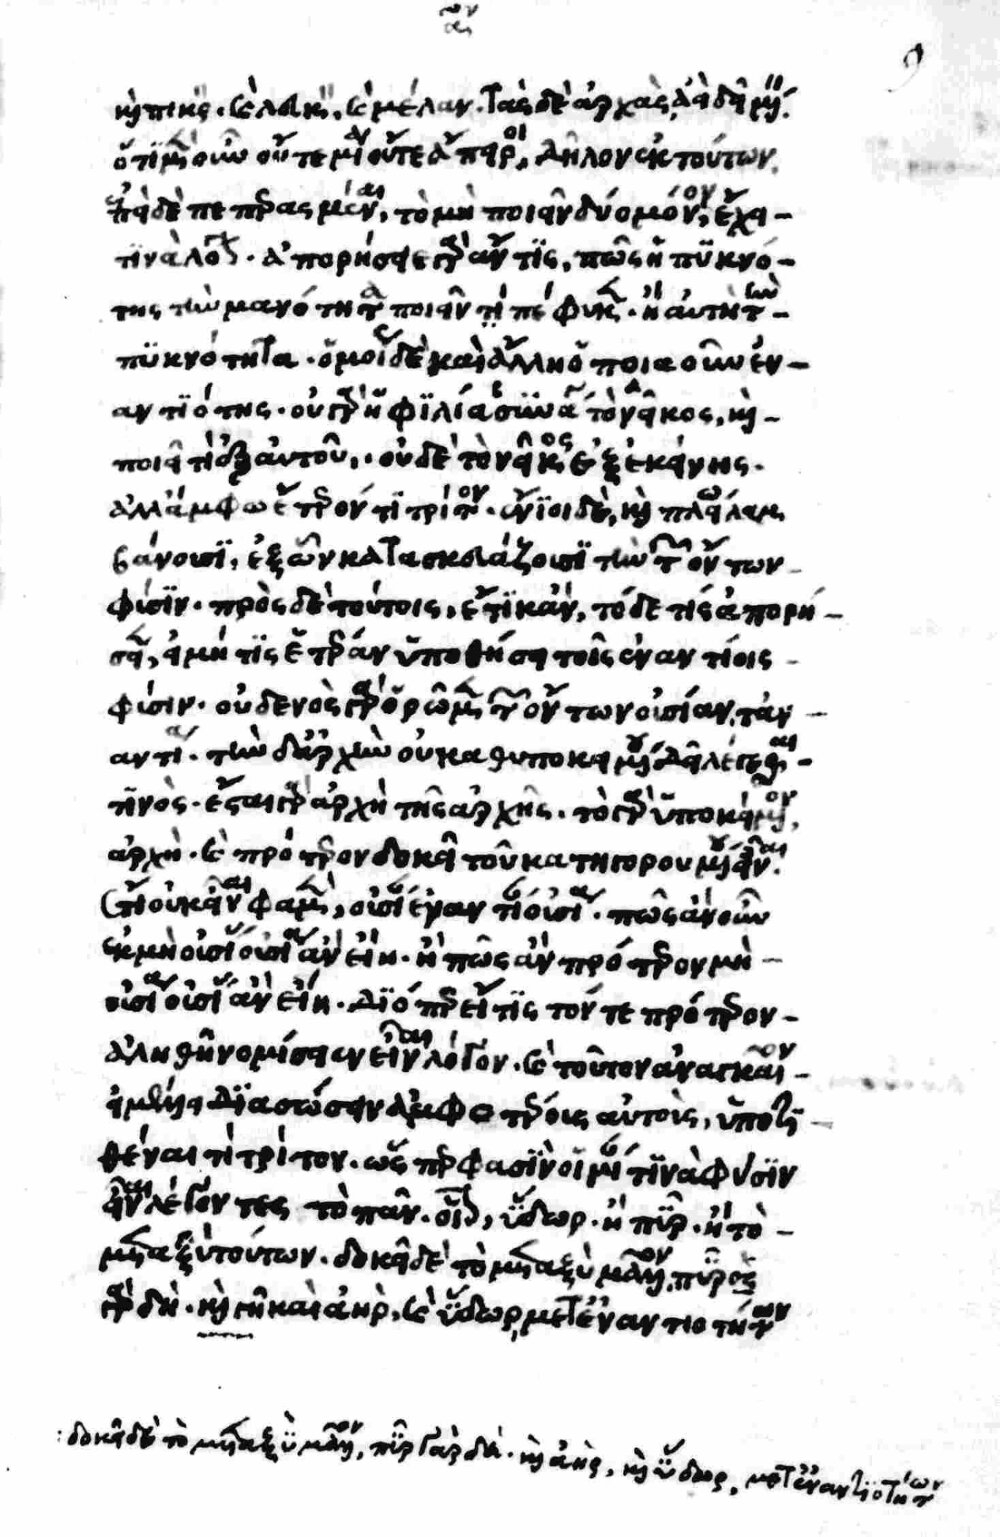 καὶ πικρόν· καὶ λευκόν, καὶ μέλαν. τὰς δὲ ἀρχὰς, ἀεὶ δεῖ μένειν.
ὅτι μὲν οὖν οὔτε μία οὔτε ἄπειροι, δῆλον ἐκ τούτων.
ἐπεὶ δὲ πεπερασμέναι, τὸ μὴ ποιεῖν δύο μόνον, ἔχει
τινὰ λόγον. ἀπορήσειε γὰρ ἄν τις, πῶς ἢ πυκνό-
της τὴν μανότητα ποιεῖν τι πέφυκεν. ἢ αὕτη τὴν
πυκνότητα. ὁμοίως δὲ καὶ ἄλλη ὁποιαοῦν ἐν-
αντιότης. οὐ γὰρ ἡ φιλία συνάγει τὸ νεῖκος, καὶ
ποιεῖ τι ἐξ αὐτοῦ. οὐδὲ τὸ νεῖκος ἐξ ἐκείνης.
ἀλλ' ἄμφω ἕτερόν τι τρίτον. ἔνιοι δὲ, καὶ πλείω λαμ-
βάνουσιν, ἐξ ὧν κατασκευάζουσι τὴν τῶν ὄντων
φύσιν. πρὸς δὲ τούτοις, ἔτι κἂν, τόδε τις ἀπορή-
σειεν, εἰ μή τις ἑτέραν ὑποθήσει τοῖς ἐναντίοις
φύσιν. οὐδενὸς γὰρ ὁρῶμεν τῶν ὄντων οὐσίαν, τἀν-
αντία. τὴν δ' ἀρχὴν οὐ καθ' ὑποκειμένου δεῖ λέγεσθαι
τινός. ἔσται γὰρ ἀρχὴ τῆς ἀρχῆς. τὸ γὰρ ὑποκείμενον,
ἀρχὴ. καὶ πρότερον δοκεῖ τοῦ κατηγορουμένου εἶναι.
ἔτι οὐκ εἶναι φαμὲν, οὐσίαν ἐναντίαν οὐσίᾳ. πῶς ἂν οὖν
ἐκ μὴ οὐσιῶν οὐσία ἂν εἴη. ἢ πῶς ἂν πρότερον μὴ
οὐσία οὐσίας ἂν εἴη. διόπερ εἴ τις τόν τε πρότερον
ἀληθῆ νομίσειεν εἶναι λόγον. καὶ τοῦτον ἀναγκαῖον
εἰ μέλλει διασώσειν ἀμφοτέρους αὐτοὺς, ὑποτι-
θέναι τι τρίτον. ὥσπερ φασὶν οἱ μίαν τινὰ φύσιν
εἶναι λέγοντες τὸ πᾶν. οἷον, ὕδωρ. ἢ πῦρ. ἢ τὸ
μεταξὺ τούτων. δοκεῖ δὲ τὸ μεταξὺ μᾶλλον. πῦρ
γὰρ δὴ. καὶ γῆ καὶ ἀὴρ, καὶ ὕδωρ, μετ' ἐναντιοτήτων
: δοκεῖ δὲ τὸ μεταξὺ μᾶλλον, πῦρ γὰρ δὴ. καὶ ἀὴρ, καὶ ὕδωρ, μετ' ἐναντιοτήτων